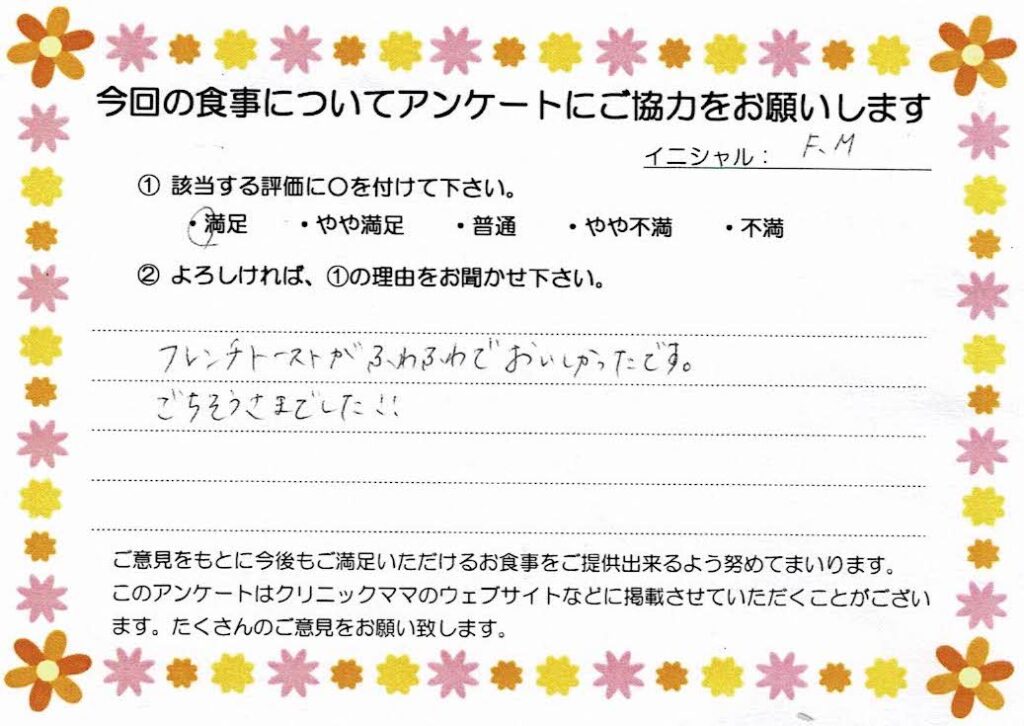 今回の食事についてアンケートにご協力をお願いします
イニシャル： F、M
① 該当する評価に〇を付けて下さい。
・満足 ・やや満足 ・普通 ・やや不満 ・不満
② よろしければ、①の理由をお聞かせ下さい。
フレンチトーストがふわふわでおいしかったです。
ごちそうさまでした!!
ご意見をもとに今後もご満足いただけるお食事をご提供出来るよう努めてまいります。
このアンケートはクリニックママのウェブサイトなどに掲載させていただくことがござい
ます。たくさんのご意見をお願い致します。